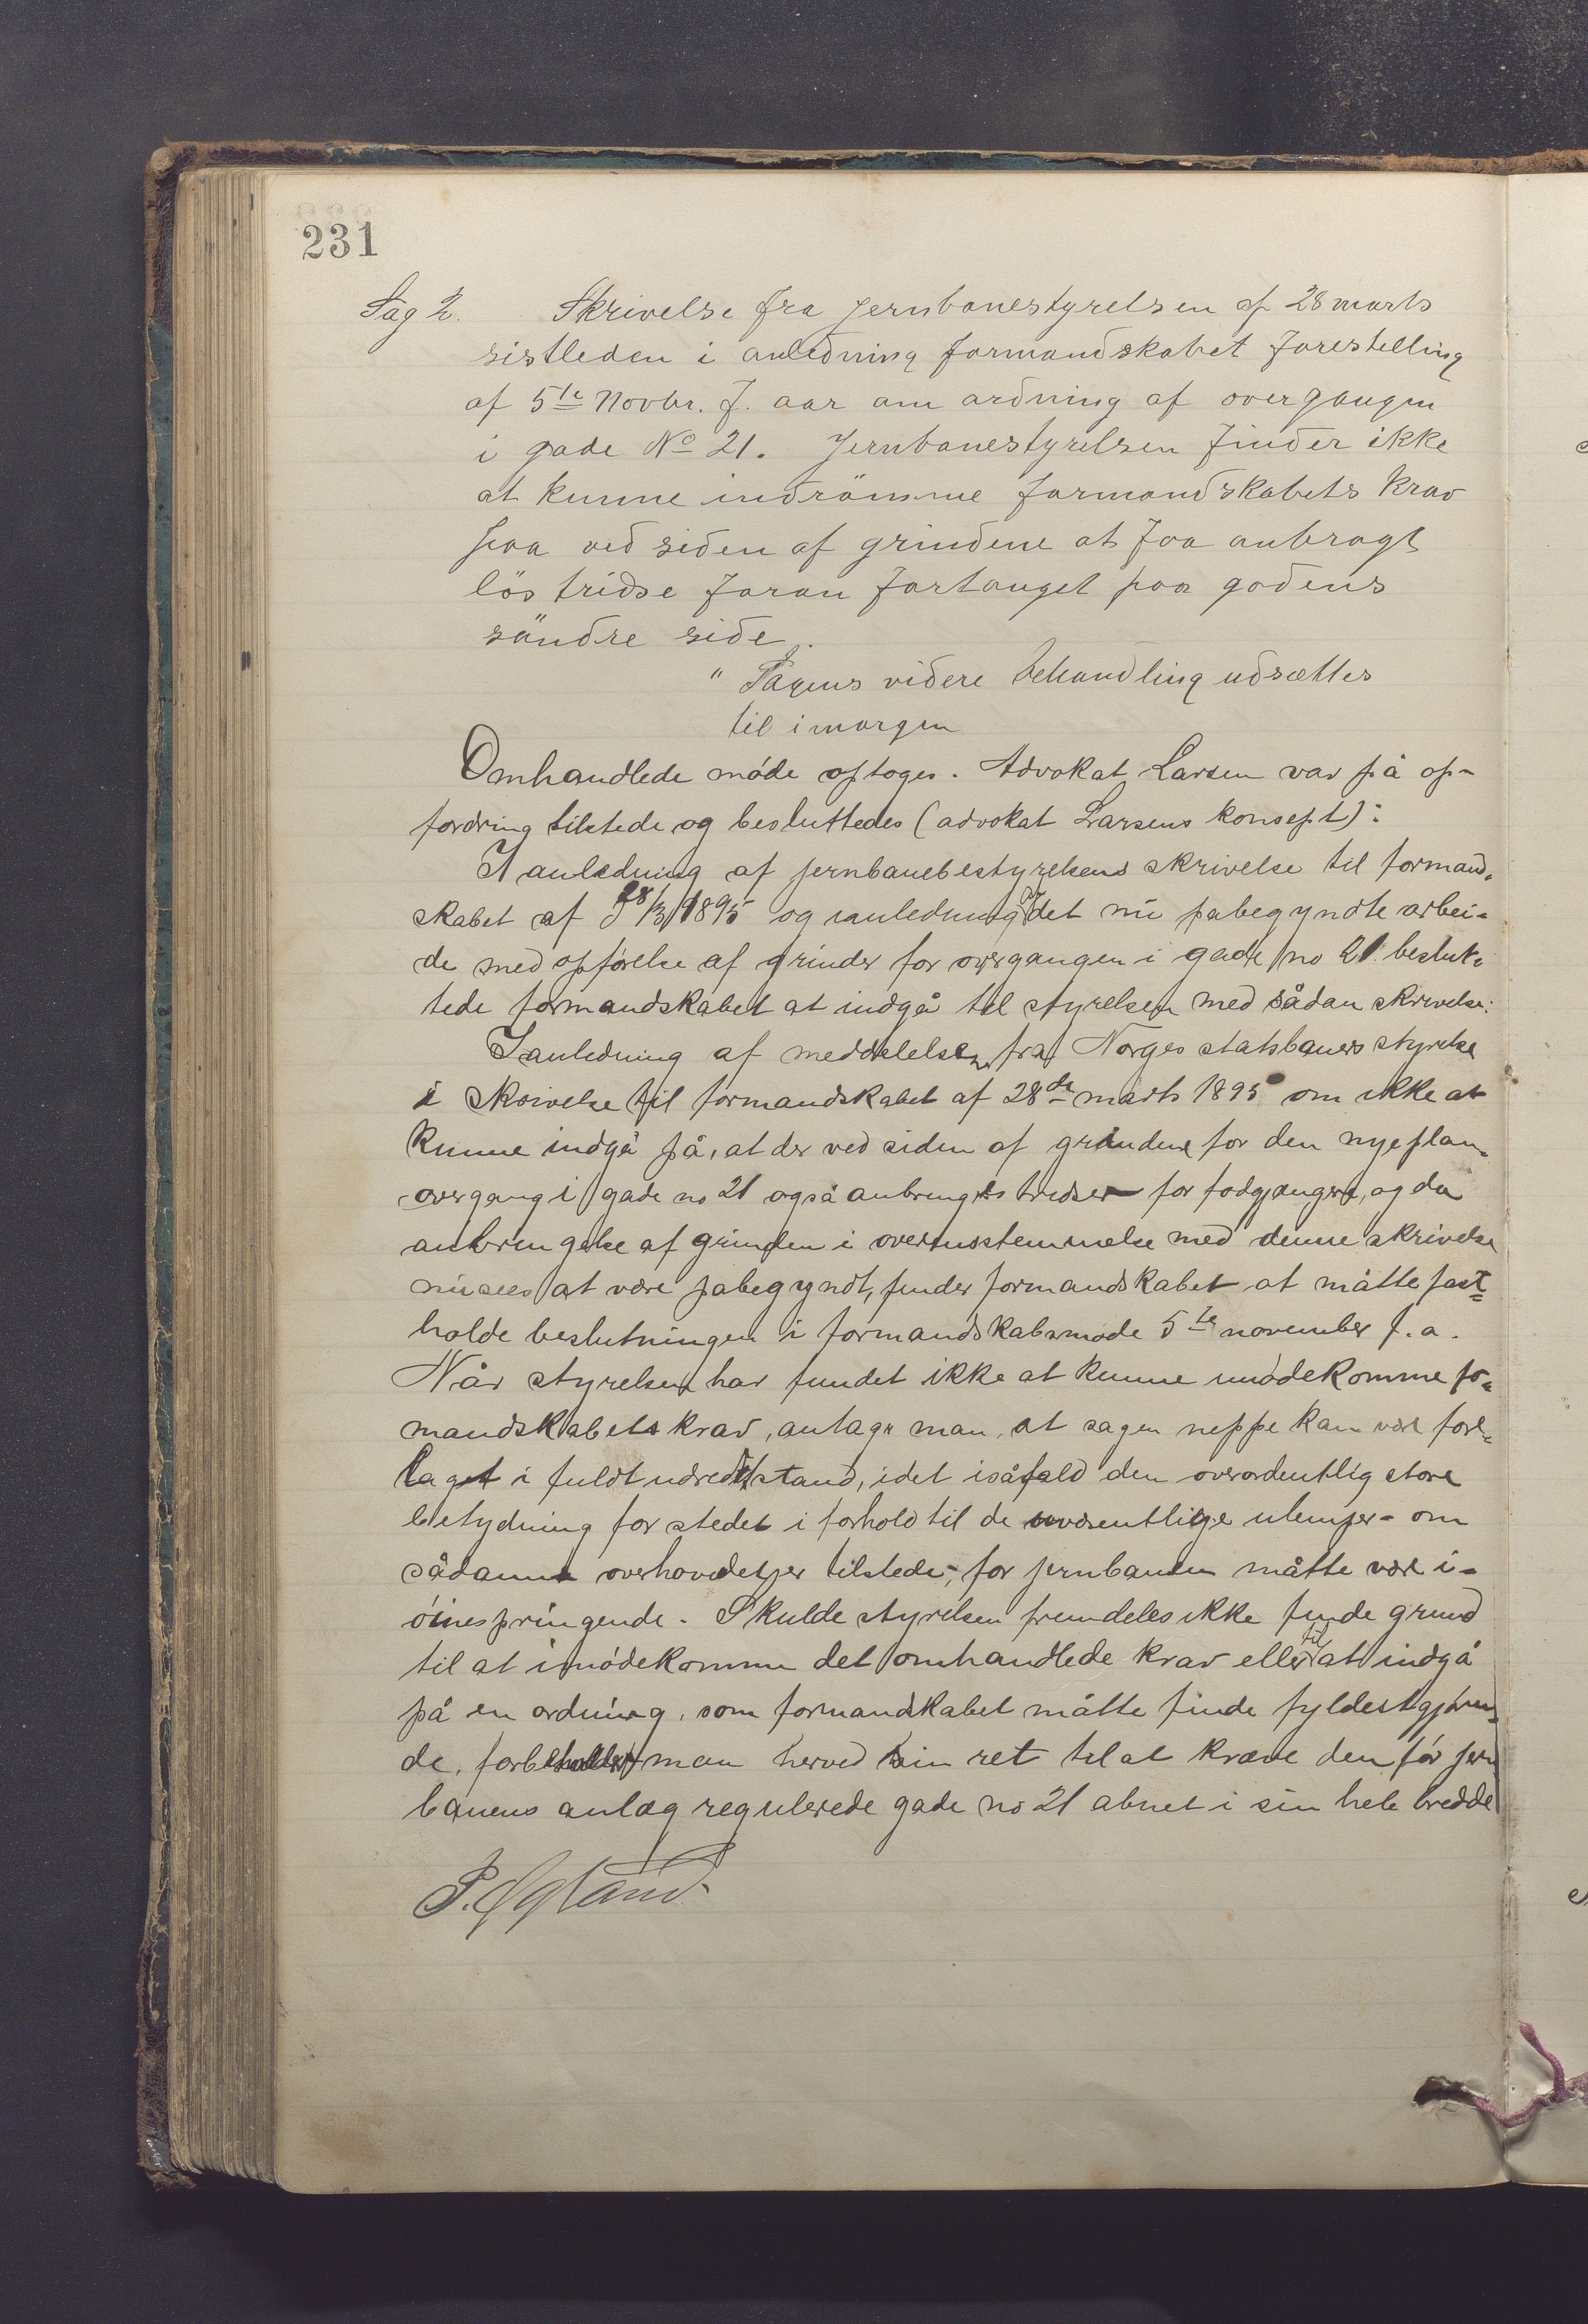 231
Sag 2. Skrivelse fra jernbanestyrelsen af 28 marts
sistleden i anledning formandskabet forestelling
af 5te Novbr. f. aar om ordning af overgangen
i gade No 21. Jernbanestyrelsen finder ikke
at kunne indrömme formandskabets krav
paa ved siden af grindene at faa anbragt
lös tridse foran fortauget paa gadens
söndre side.
" Sagens videre behandling udsættes
til imorgen
Omhandlede møde optoges. Advokat Larsen var på op-
fordring tilstede og besluttedes (advokat Larsens konsept):
I anledning af jernbanebestyrelsens skrivelse til formand-
skabet af 28/3 1895 og ianledning af det nu påbegyndte arbei-
de med opførelse af grinder for overgangen i gade no 21 beslut-
tede formandskabet at indgå til styrelsen med sådan skrivelse:
Ianledning af meddelelsen fra Norges statsbaners styrelse
i skrivelse til formandskabet af 28de marts 1895 om ikke at
kunne indgå på, at der ved siden af grindene for den nye plan-
overgang i gade no 21 også anbringes tridser for fodgjængere, og da
anbringelse af grinden i overensstemmelse med denne skrivelse
nu sees at være påbegyndt, finder formandskabet at måtte fast-
holde beslutningen i formandskabsmøde 5te november f. a.
Når styrelsen har fundet ikke at kunne imødekomme for-
mandskabets krav, antager man, at sagen neppe kan være fore-
laget i fuldt udredet stand, idet isåfald den overordentlig store
betydning for stedet i forhold til de uvæsentlige ulemper - om
sådanne overhovedet er tilstede -, for jernbanen måtte være i-
øinespringende. Skulde styrelsen fremdeles ikke finde grund
til at imødekomme det omhandlede krav eller til at indgå
på en ordning, som formandskabet måtte finde fyldestgjøren-
de, forbeholder man herved sin ret til at kræve den før jern
banens anlæg regulerede gade no 21 åbnet i sin hele bredde